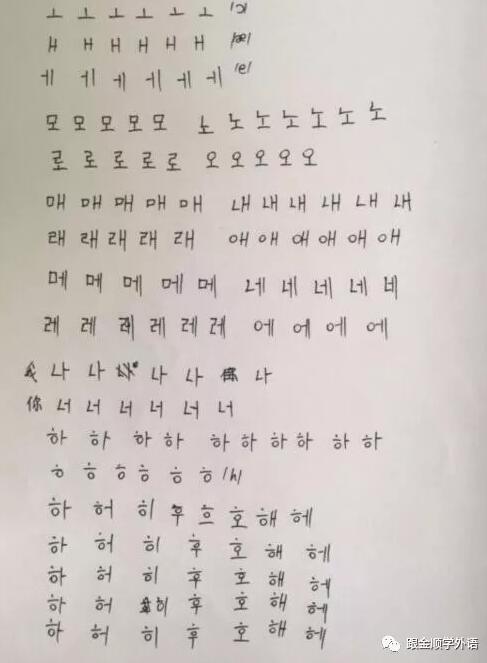 ㅗ ㅗ ㅗ ㅗ ㅗ ㅗ /ɔ/
ㅐ ㅐ ㅐ ㅐ ㅐ ㅐ /æ/
ㅔ ㅔ ㅔ ㅔ ㅔ ㅔ /e/
모 모 모 모 모 노 노 노 노 노 노 노
로 로 로 로 로 오 오 오 오 오
매 매 매 매 매 내 내 내 내 내 내
래 래 래 래 래 애 애 애 애 애 애
메 메 메 메 메 네 네 네 네 네
레 레 레 레 레 레 에 에 에 에
我 나 나 나 나 나
你 너 너 너 너 너 너
하 하 하 하 하 하 하 하 하 하
ㅎ ㅎ ㅎ ㅎ ㅎ ㅎ /h/
하 허 히 후 흐 호 해 헤
하 허 히 후 호 해 헤
하 허 히 후 호 해 헤
하 허 히 후 호 해 헤
하 허 히 후 호 해 헤
跟金顺学外语